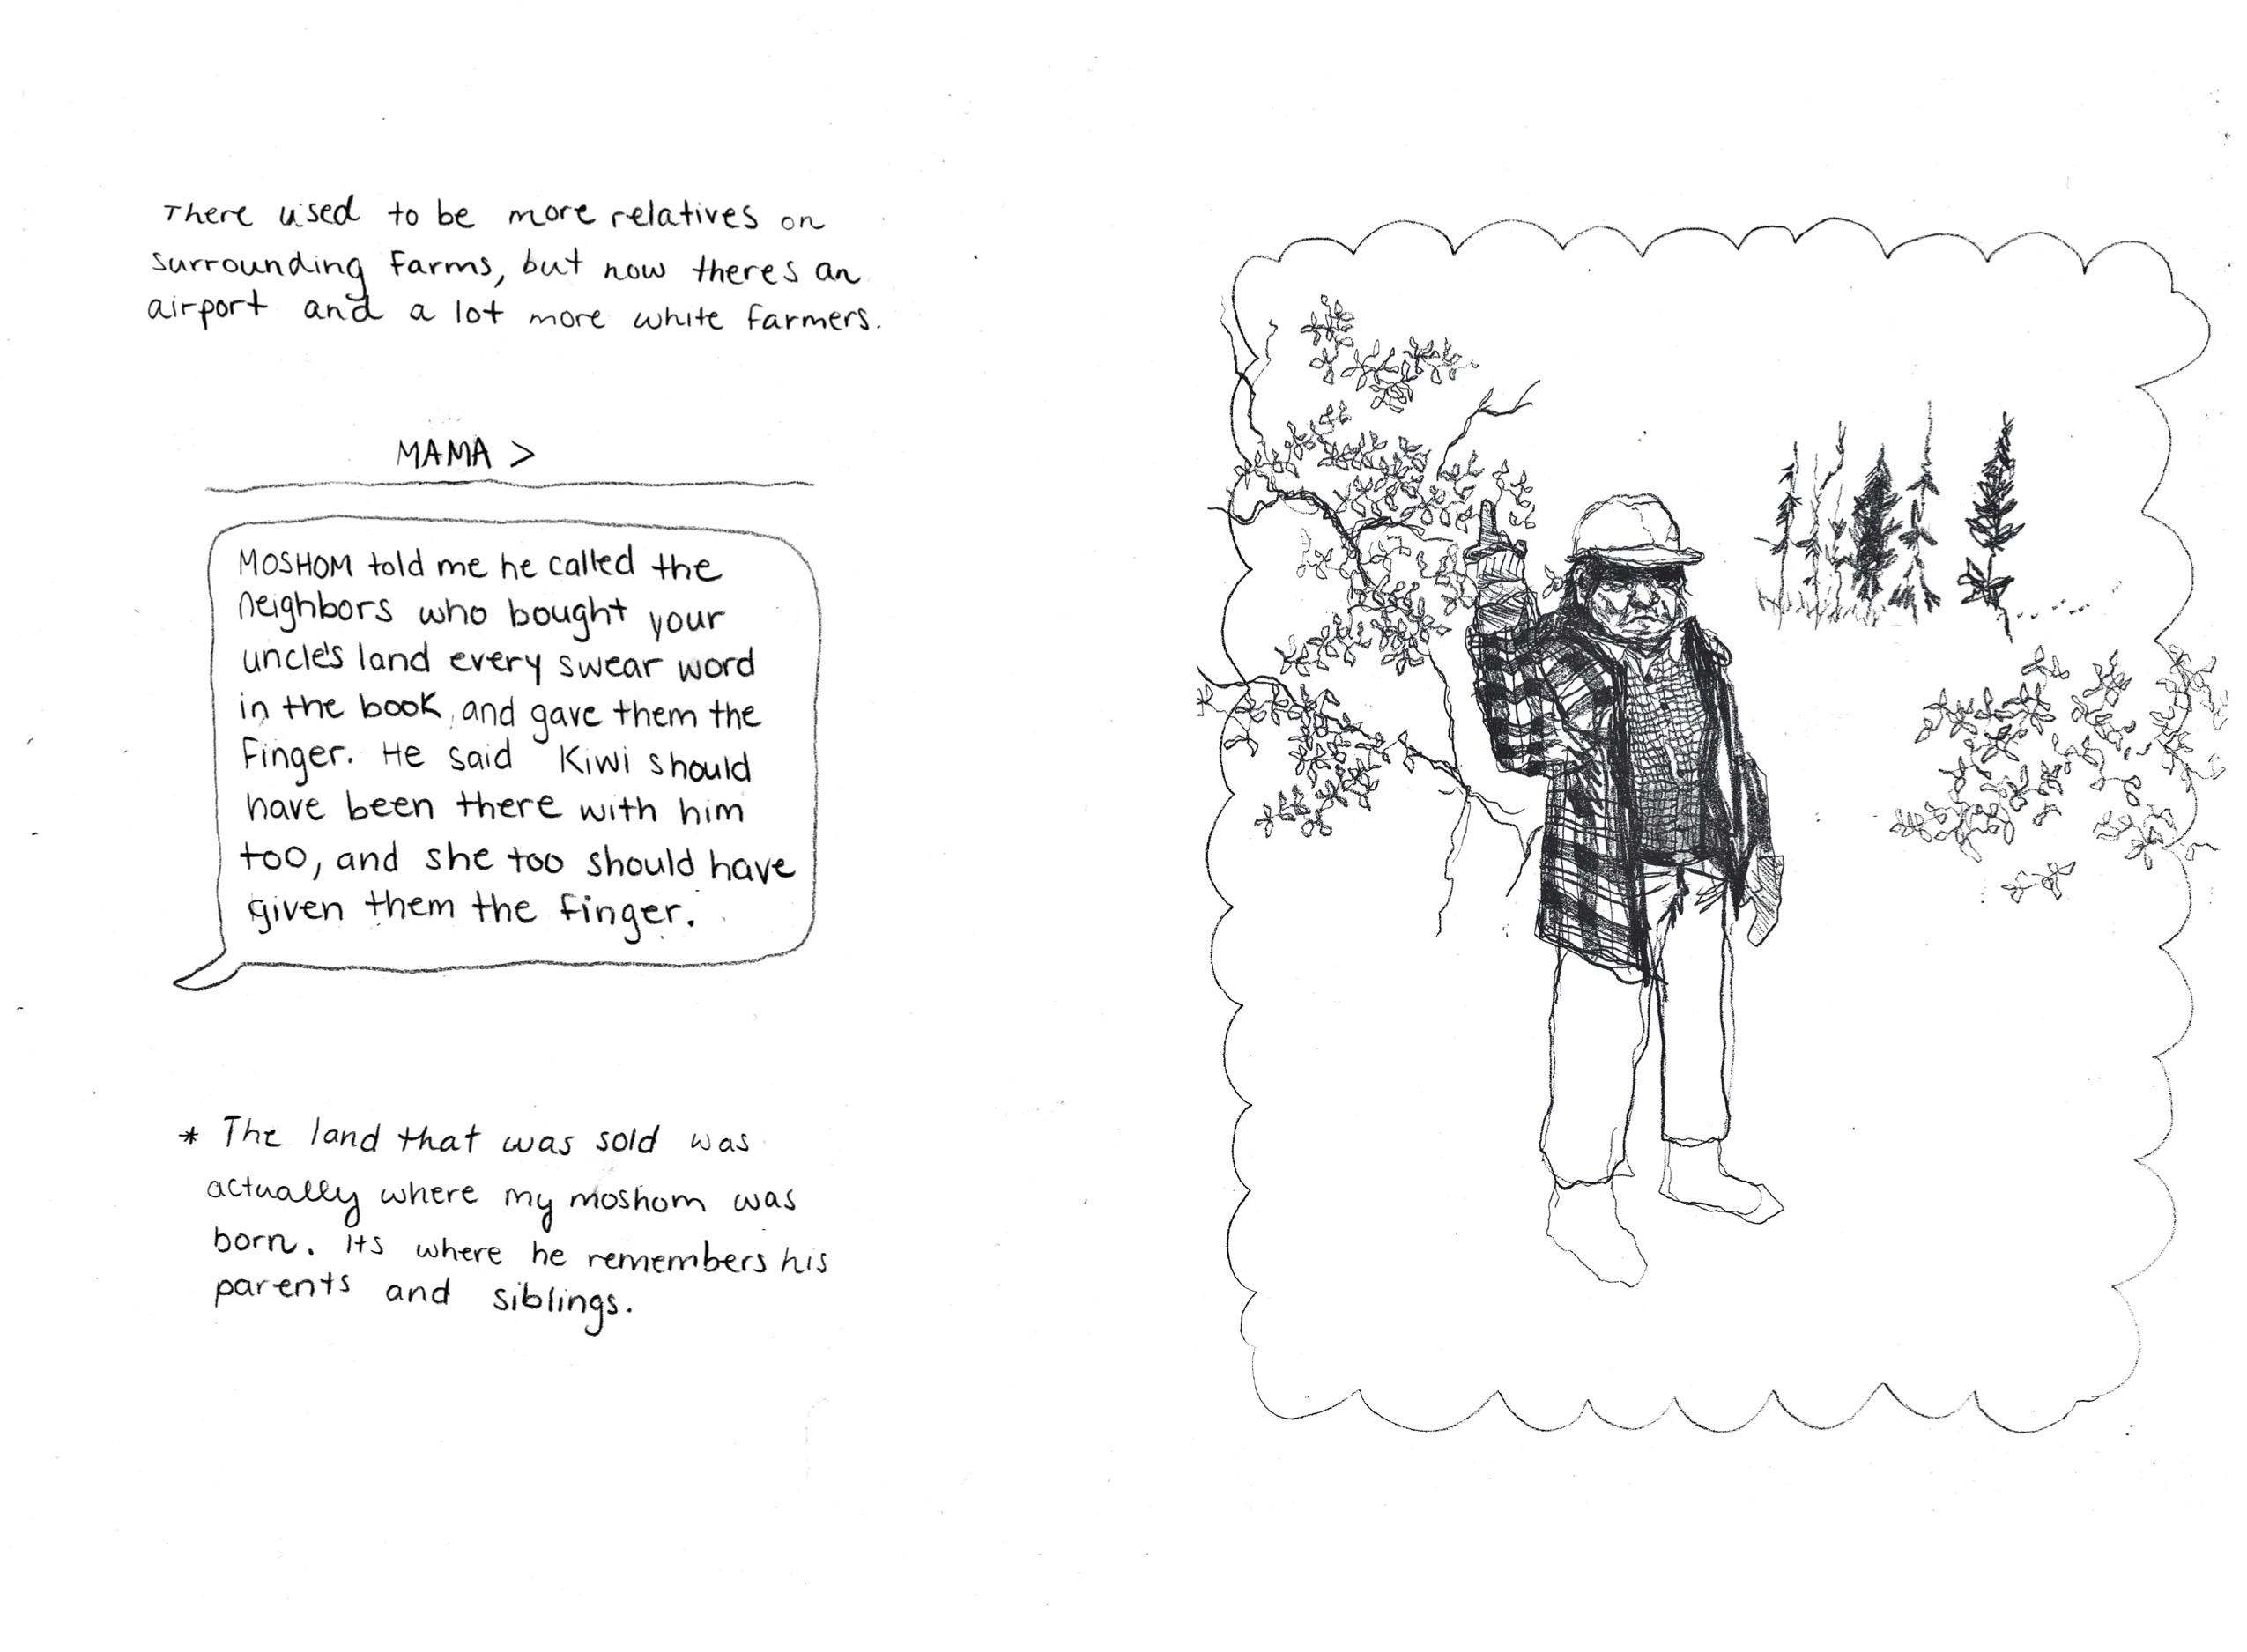 There used to be more relatives on
surrounding farms, but now theres an
airport and a lot more white farmers.
MAMA >
MOSHOM told me he called the
neighbors who bought your
uncle's land every swear word
in the book, and gave them the
finger. He said Kiwi should
have been there with him
too, and she too should have
given them the finger.
* The land that was sold was
actually where my moshom was
born. Its where he remembers his
parents and siblings.